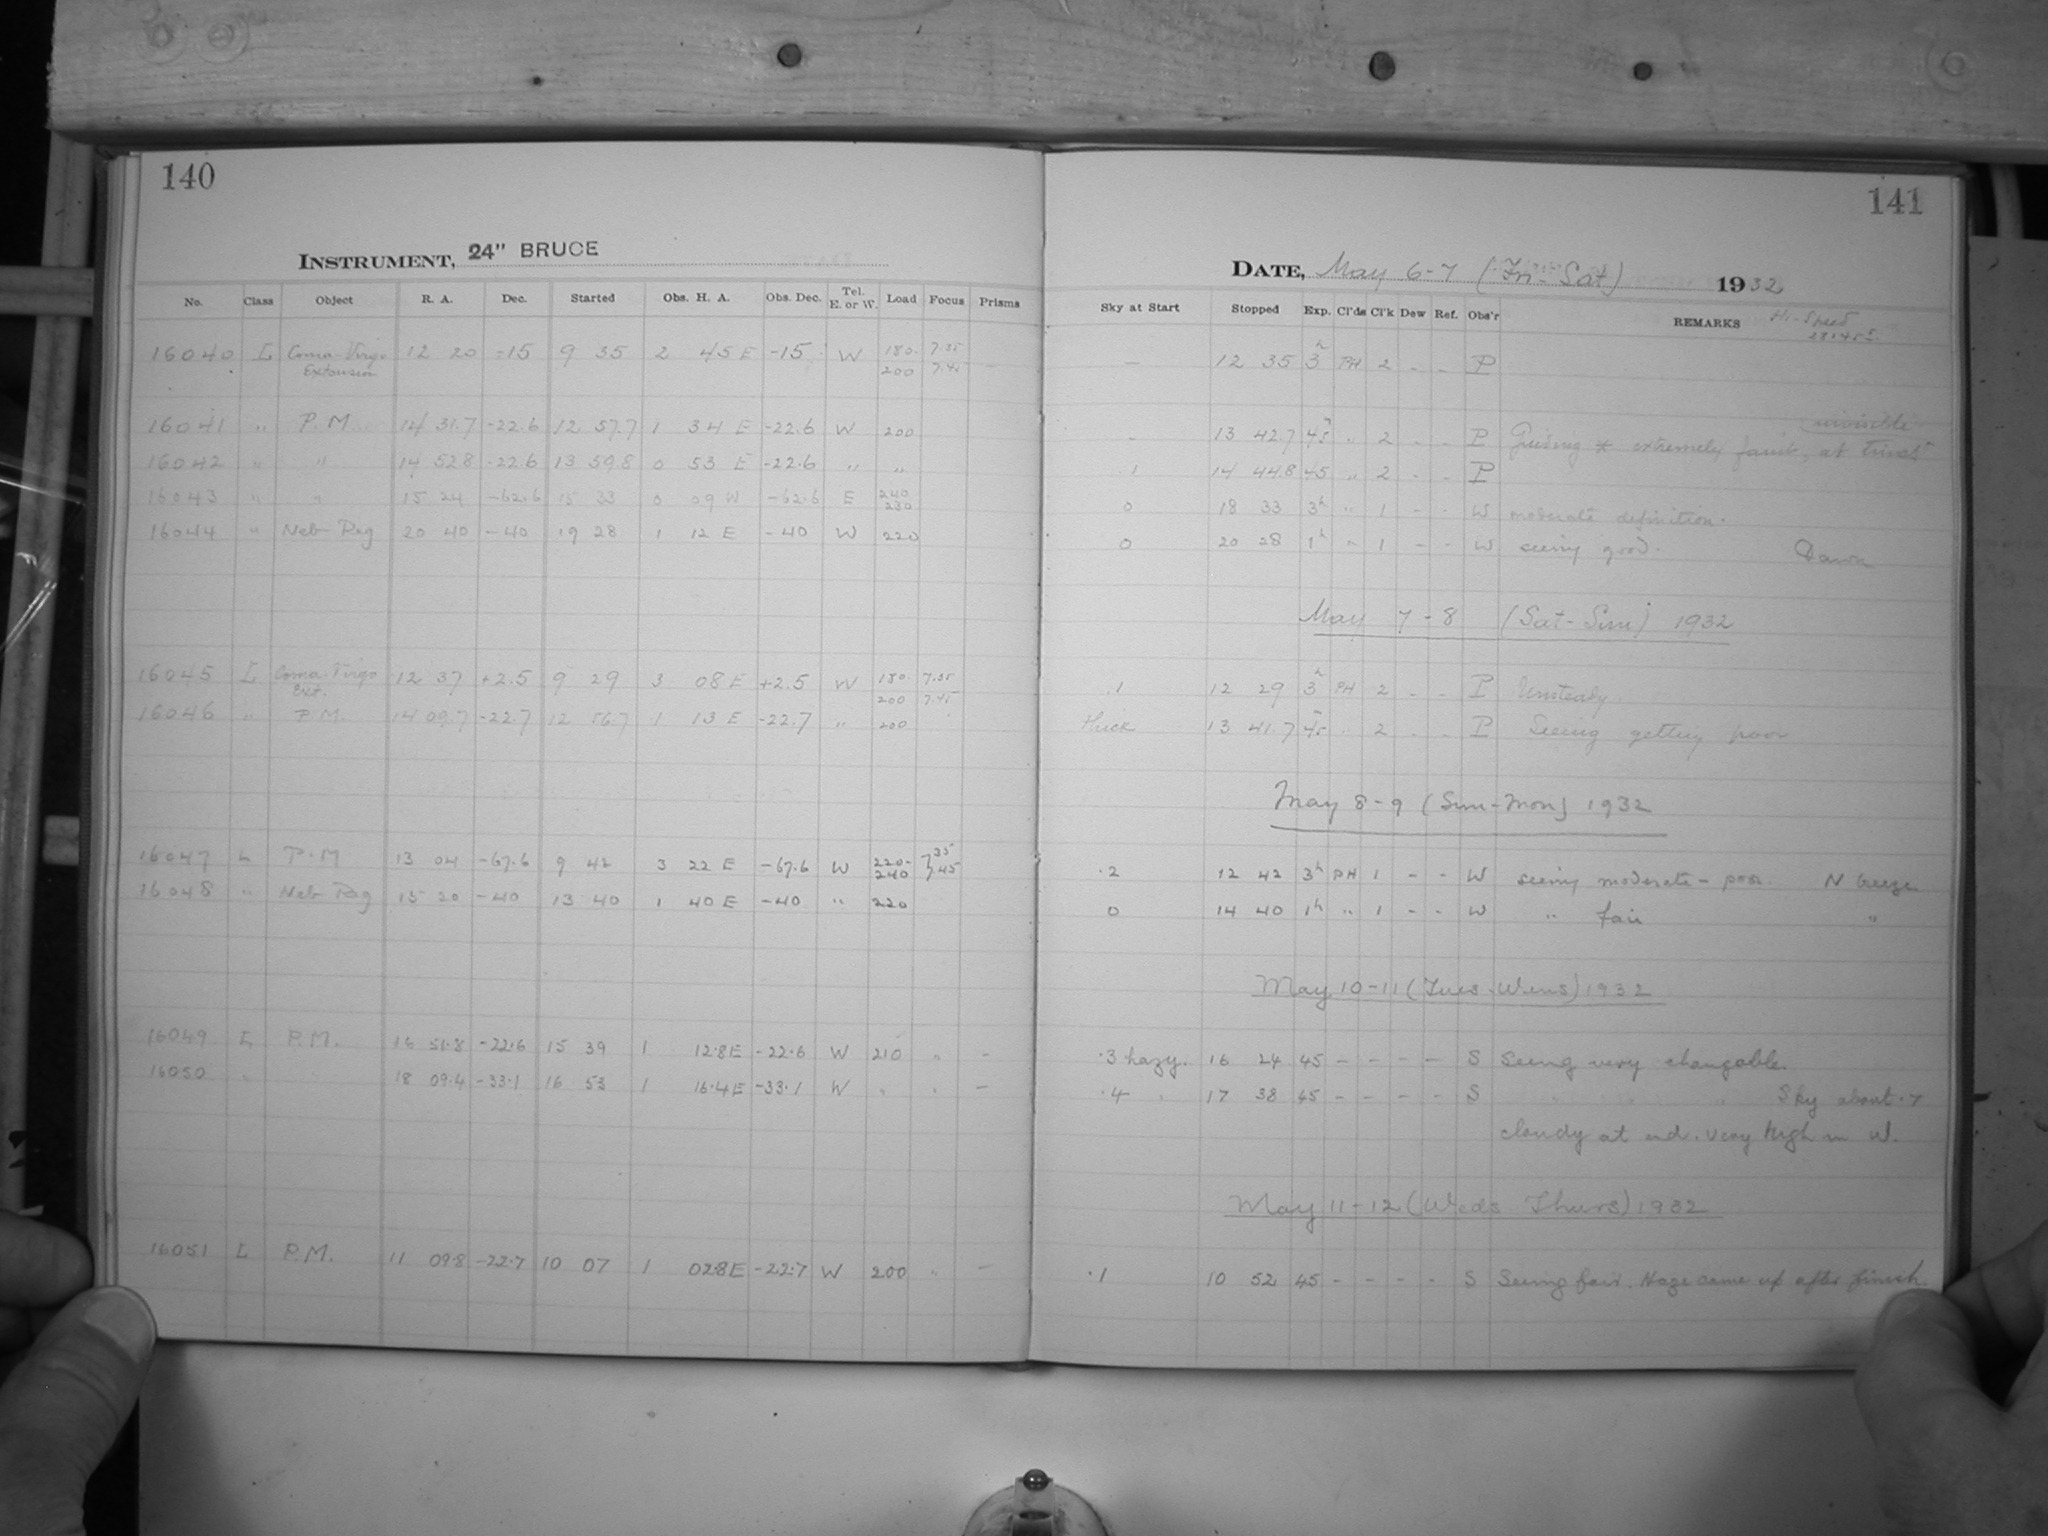 140
INSTRUMENT, 24" BRUCE
No. Class Object R. A. Dec. Started Obs. H. A. Obs. Dec. Tel. E. or W. Load Focus Prisms
16040 L Coma-Virgo Extension 12 20 -15 9 35 2 45 E -15 W 180. 200 7.35 7.45
16041 " P.M. 14 31.7 -22.6 12 57.7 1 34 E -22.6 W 200
16042 " " 14 52.8 -22.6 13 59.8 0 53 E -22.6 " "
16043 " " 15 24 -62.6 15 33 0 09 W -62.6 E 240 230
16044 " Neb Reg 20 40 -40 19 28 1 12 E -40 W 220
16045 L Coma-Virgo Ext. 12 37 +2.5 9 29 3 08 E +2.5 W 180. 200 7.35 7.45
16046 " P.M. 14 09.7 -22.7 12 56.7 1 13 E -22.7 " 200
16047 L P.M 13 04 -67.6 9 42 3 22 E -67.6 W 220- 240 7.35 7.45
16048 " Neb Reg 15 20 -40 13 40 1 40 E -40 " 220
16049 L P.M. 16 51.8 -22.6 15 39 1 12.8E -22.6 W 210 " -
16050 " 18 09.4 -33.1 16 53 1 16.4E -33.1 W " " -
16051 L P.M. 11 09.8 -22.7 10 07 1 02.8E -22.7 W 200 " -
141
DATE, May 6-7 (Fri-Sat) 1932
Sky at Start Stopped Exp. Cl'ds Cl'k Dew Ref. Obs'r REMARKS Hi-Speed
- 12 35 3h PH 2 - - P
invisible
- 13 42.7 45m " 2 - - P Guiding * extremely faint, at times
.1 14 44.8 45 " 2 - - P
0 18 33 3h " 1 - - W moderate definition.
0 20 28 1h " 1 - - W seeing good. Dawn
May 7-8 (Sat-Sun) 1932
.1 12 29 3h PH 2 - - P Unsteady.
thick 13 41.7 45m " 2 - - P Seeing getting poor
May 8-9 (Sun-Mon) 1932
.2 12 42 3h PH 1 - - W seeing moderate - poor. N breeze
0 14 40 1h " 1 - - W " fair "
May 10-11 (Tues-Wens) 1932
.3 hazy. 16 24 45 - - - - S Seeing very changable.
.4 " 17 38 45 - - - - S " " " Sky about .7
cloudy at end. very high in W.
May 11-12 (Weds Thurs) 1932
.1 10 52 45 - - - - S Seeing fair. Haze came up after finish.